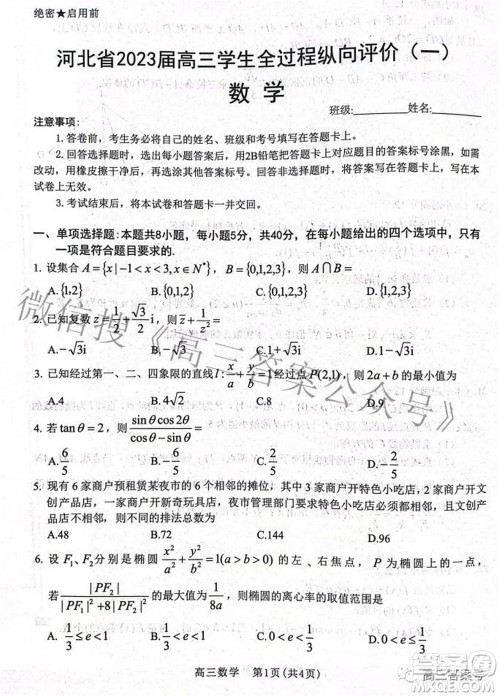 绝密★启用前
河北省2023届高三学生全过程纵向评价（一）
数学
班级:________姓名:________
注意事项：
1. 答卷前，考生务必将自己的姓名、班级和考号填写在答题卡上。
2. 回答选择题时，选出每小题答案后，用2B铅笔把答题卡上对应题目的答案标号涂黑，如需改动，用橡皮擦干净后，再选涂其他答案标号。回答非选择题时，将答案写在答题卡上，写在本试卷上无效。
3. 考试结束后，将本试卷和答题卡一并交回。
一、单项选择题: 本题共8小题，每小题5分，共40分，在每小题给出的四个选项中，只有一项是符合题目要求的.
1. 设集合A={x|-1<x<3,x∈N*}，B={0,1,2,3}，则A∩B=
A.{1,2} B.{0,1,2} C.{0,1,2,3} D.{1,2,3}
2. 已知复数z=1/2+√3/2 i，则z+1/z²=
A.-√3i B.√3i C.1+√3i D.0
3. 已知经过第一、二、四象限的直线l:x/a+y/b=1经过点P(2,1)，则2a+b的最小值为
A.4 B.4√2 C.8 D.9
4. 若tanθ=2，则 sinθcos2θ/(cosθ-sinθ)=
A.-6/5 B.6/5 C.2/5 D.-2/5
5. 现有6家商户预租赁某夜市的6个相邻的摊位，其中3家商户开特色小吃店，2家商户开文创产品店，一家商户开新奇玩具店，夜市管理部门要求特色小吃店必须都相邻，且文创产品店不相邻，则不同的排法总数为
A.48 B.72 C.144 D.96
6. 设F₁、F₂分别是椭圆x²/a²+y²/b²=1(a>b>0)的左、右焦点，P为椭圆上的一点，若|PF₂|/(|PF₁|²+8|PF₂|)的最大值为1/8a，则椭圆的离心率的取值范围是
A.1/3≤e<1 B.0<e≤1/3 C.1/3<e<1 D.0<e<1/3
高三数学 第1页(共4页)
微信搜《高三答案公众号》
高三答案号
答案圈
MXQE.COM